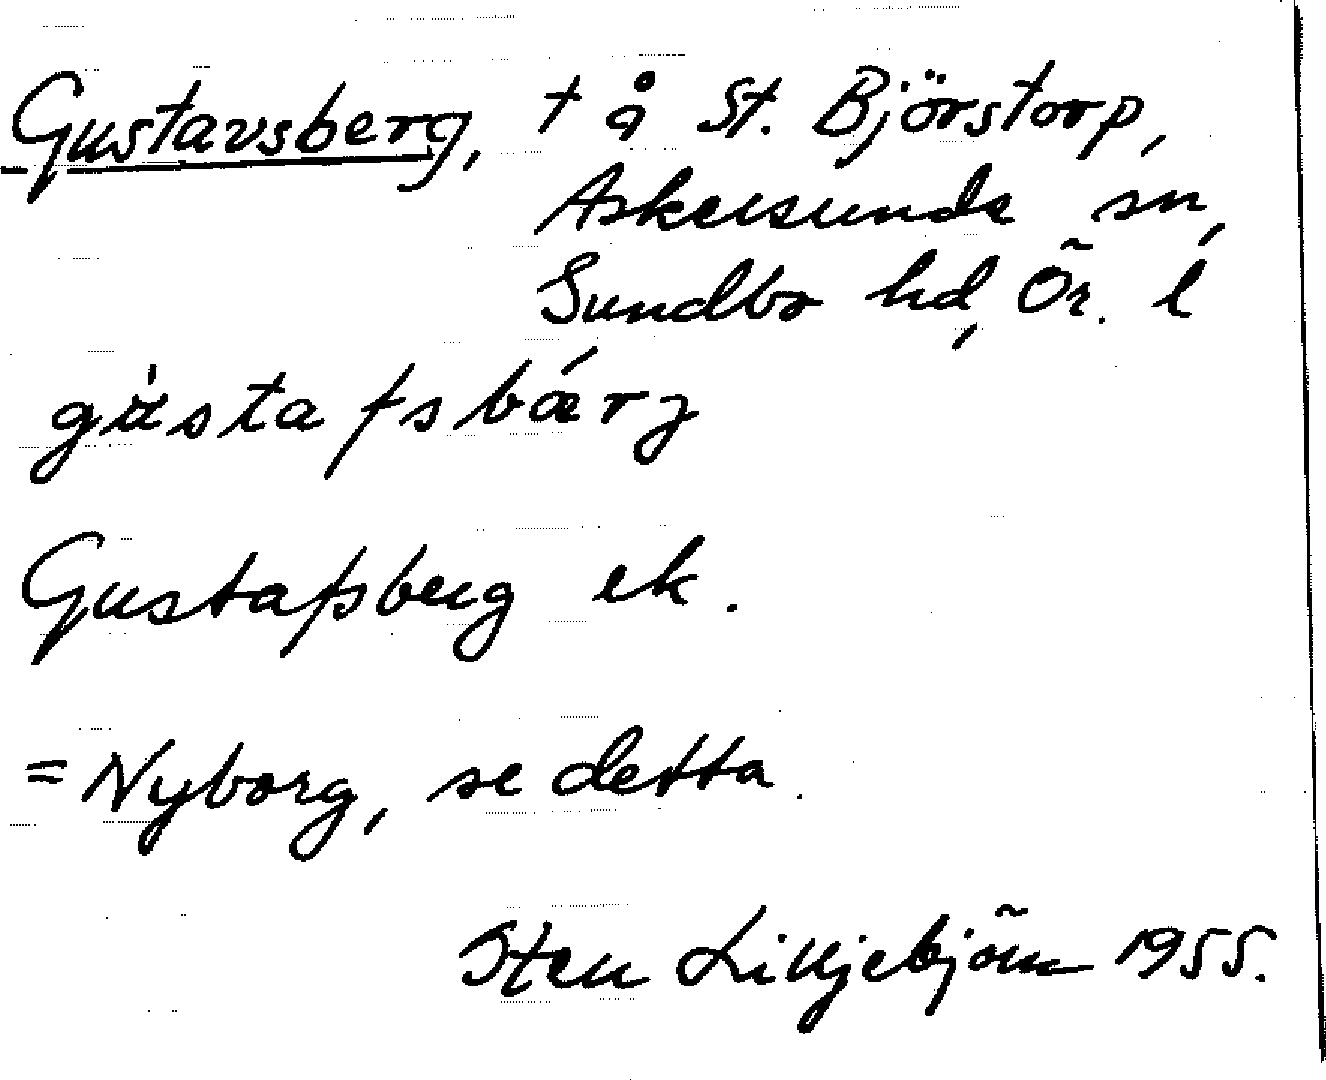 Gustavsberg, t å St. Björstorp,
Askersunds sn,
Sundbo hd, Ör. l
gústafsbǽrj
Gustafsberg ek.
= Nyborg, se detta.
Sten Lilljebjörn 1955.